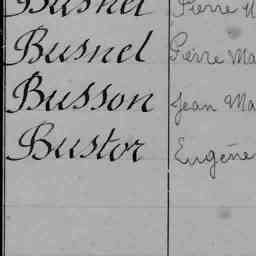 Busnel Pierre
Busnel Pierre Ma
Busson Jean Ma
Bustor Eugène